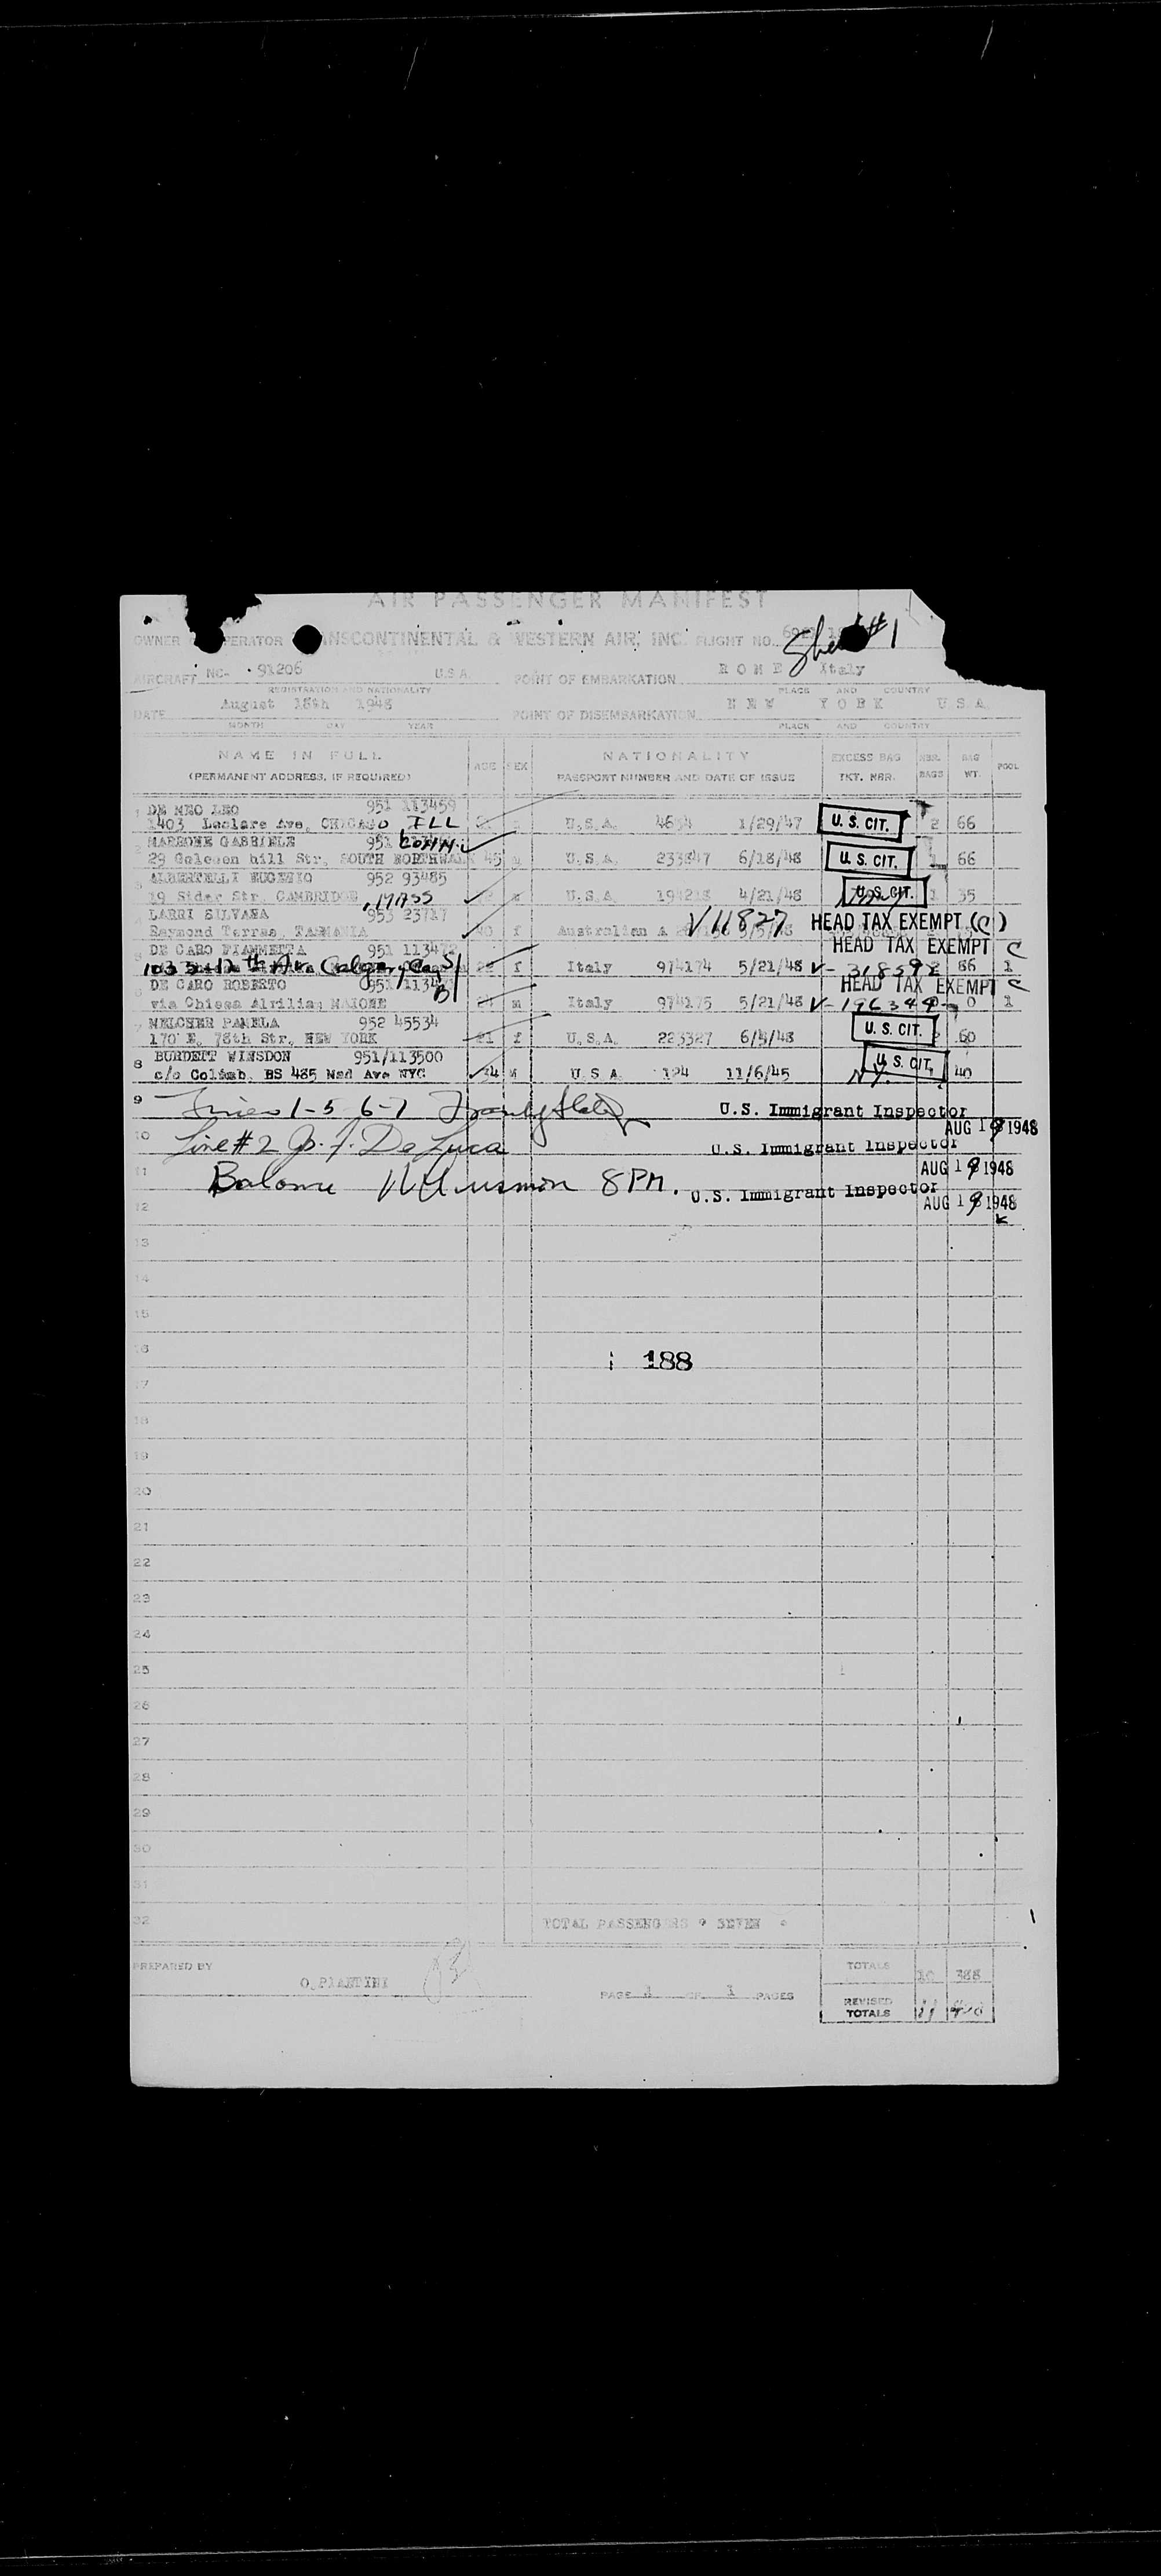 AIR PASSENGER MANIFEST
OWNER PERATOR NSCONTINENTAL & WESTERN AIR, INC. FLIGHT NO. #1
AIRCRAFT NC- 91206 U.S.A. POINT OF EMBARKATION ROME Italy
REGISTRATION AND NATIONALITY PLACE AND COUNTRY
DATE August 18th 1948 POINT OF DISEMBARKATION NEW YORK U S A
MONTH DAY YEAR PLACE AND COUNTRY
NAME IN FULL NATIONALITY EXCESS BAG NBR. BAG
(PERMANENT ADDRESS, IF REQUIRED) AGE SEX PASSPORT NUMBER AND DATE OF ISSUE TKT. NBR. BAGS WT. POOL
1 DE MEO LEO 951 113459
1403 Leclare Ave, CHICAGO ILL U.S.A. 1/29/47 U. S. CIT. 2 66
2 MARRONE GABRIELE 951 CONN.
29 Hill Str, SOUTH NORTHWALK 45 m U.S.A. 233847 6/18/48 U. S. CIT. 1 66
3 ALBERTELLI EUGENIO 952 93485
19 Sider Str. CAMBRIDGE, MASS m U.S.A. 4/21/48 U. S. CIT. 1 35
4 LARRI SILVANA 953 23717 V 11827 HEAD TAX EXEMPT (C)
Raymond Terras, TASMANIA 40 f Australian A
5 DE CARO FIAMMETTA 951 113472 HEAD TAX EXEMPT C
Ave Calgary f Italy 974174 5/21/48 V- 318598 86 1
6 DE CARO ROBERTO 951 HEAD TAX EXEMPT C
via Chiesa MAIONE m Italy 974175 5/21/48 V- 0 1
7 MELCHER PAMELA 952 45534 U. S. CIT.
170 E. 78th Str, NEW YORK 21 f U.S.A. 223327 6/5/48 60
8 BURDETT WINSDON 951/113500 U. S. CIT.
c/o Colámb. BS 485 Mad Ave NYC 34 M U S A 124 11/6/45 N.Y. 40
9 Lines 1-5 6-7 U.S. Immigrant Inspector
AUG 19 1948
10 Line #2 De Luca U.S. Immigrant Inspector
11 AUG 19 1948
Balance 8 PM. U.S. Immigrant Inspector
12 AUG 19 1948
13
14
15
16 188
17
18
19
20
21
22
23
24
25
26
27
28
29
30
31
32 TOTAL PASSENGERS * SEVEN *
PREPARED BY O. PIANTINI TOTALS 10 388
PAGE 1 OF 1 PAGES
REVISED TOTALS 11